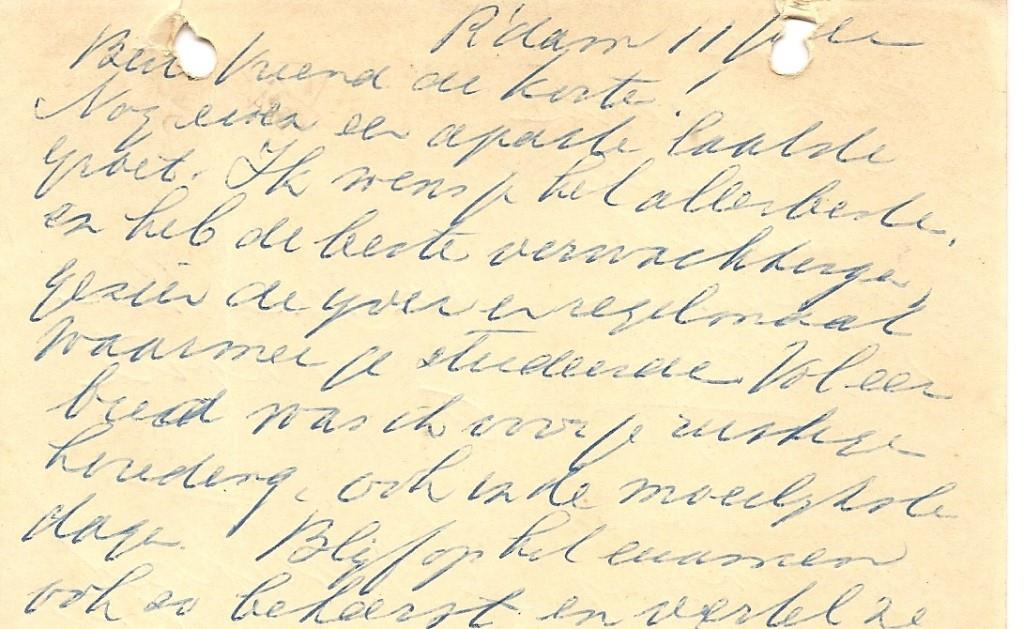 R'dam 11 Julie
Beste Vriend de Korte!
Nog even een aparte laatste
groet. Ik wens je het allerbeste,
en heb de beste verwachtingen,
gezien de yver en regelmaat
waarmee je studeerde. Vol eer
bied was ik voor je rustige
houding, ook in de moeilykste
dagen. Blyf op het examen
ook zo beheerst en vertel ze